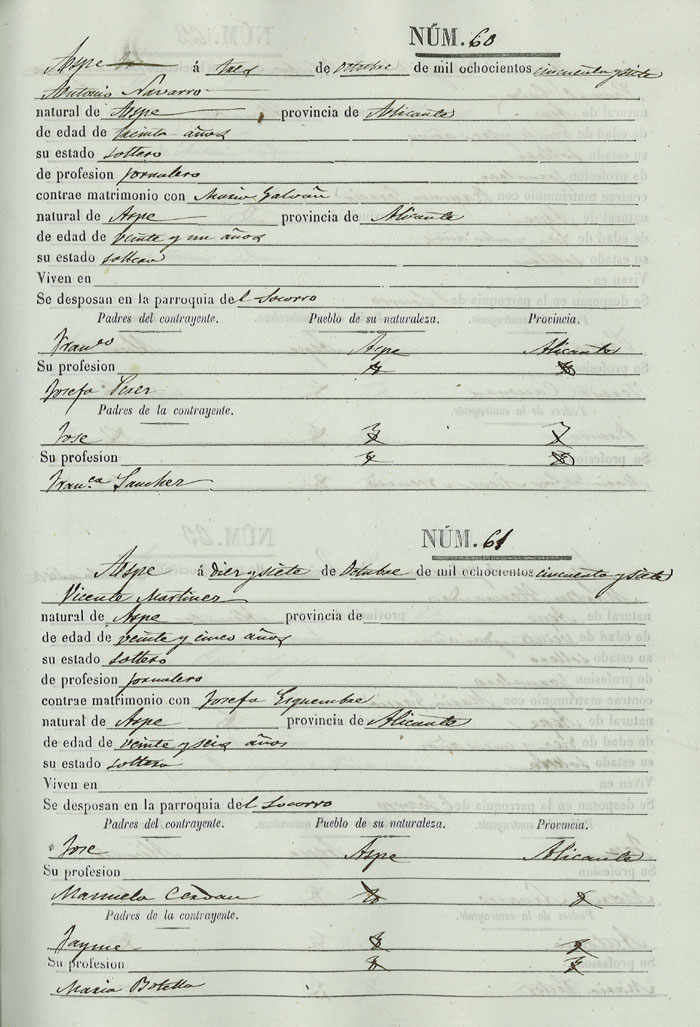 NÚM. 60
Aspe á de Octubre de mil ochocientos cincuenta y siete
Antonio Navarro
natural de Aspe provincia de Alicante
de edad de años
su estado soltero
de profesion jornalero
contrae matrimonio con Maria Galvañ
natural de Aspe provincia de Alicante
de edad de veinte y un años
su estado soltera
Viven en
Se desposan en la parroquia del Socorro
Padres del contrayente. Pueblo de su naturaleza. Provincia.
Franco Aspe Alicante
Su profesion
Josefa Perez
Padres de la contrayente.
Jose
Su profesion
Fran.ca Sanchez
NÚM. 61
Aspe á diez y siete de Octubre de mil ochocientos cincuenta y siete
Vicente Martinez
natural de Aspe provincia de
de edad de veinte y cinco años
su estado soltero
de profesion jornalero
contrae matrimonio con Josefa Esquembre
natural de Aspe provincia de Alicante
de edad de veinte y seis años
su estado soltera
Viven en
Se desposan en la parroquia del Socorro
Padres del contrayente. Pueblo de su naturaleza. Provincia.
Jose Aspe Alicante
Su profesion
Manuela Cerdan
Padres de la contrayente.
Jayme
Su profesion
Maria Botella